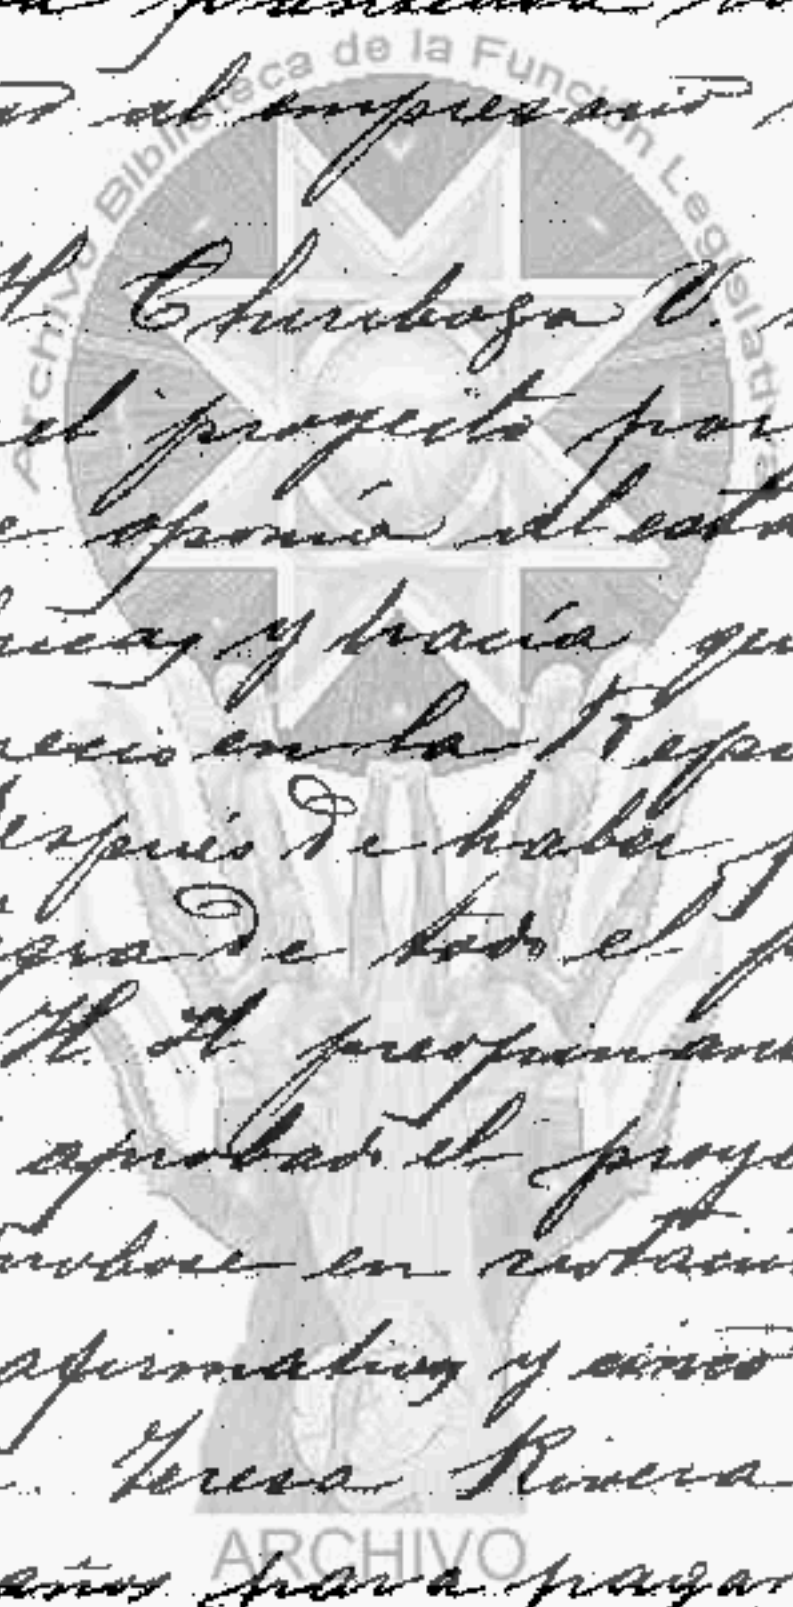 Archivo Biblioteca de la Función Legislativa
al empresario
H. Chiriboga V.
el proyecto por
oponía al esta
y hacía que
necio en la Repú
después de haber
gra de todo el p
H. H. preopinant
aprobado el proye
en votación
afirmativos y cinco
Teresa Rivera
ARCHIVO
años para pagar